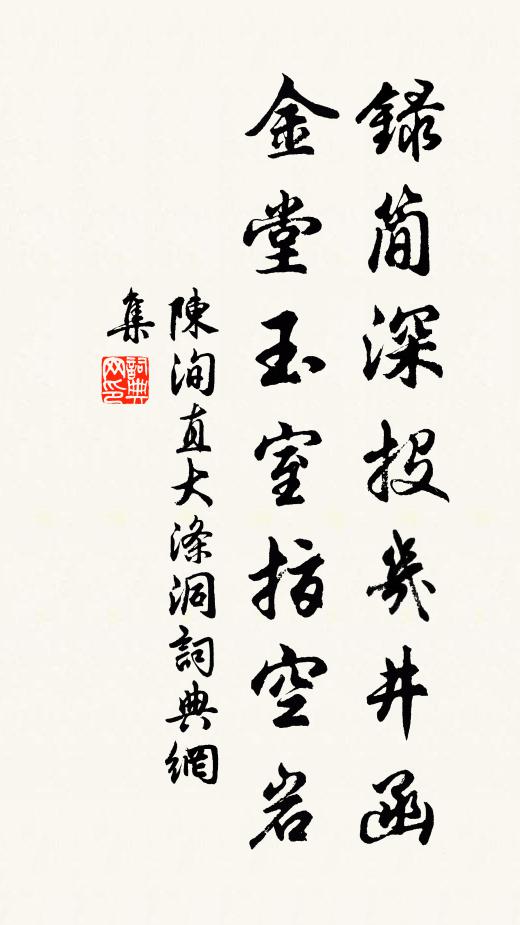 録简深投幾井函
金堂玉室指空岩
陳洵直大滌洞詞典網
集
詞典
网印